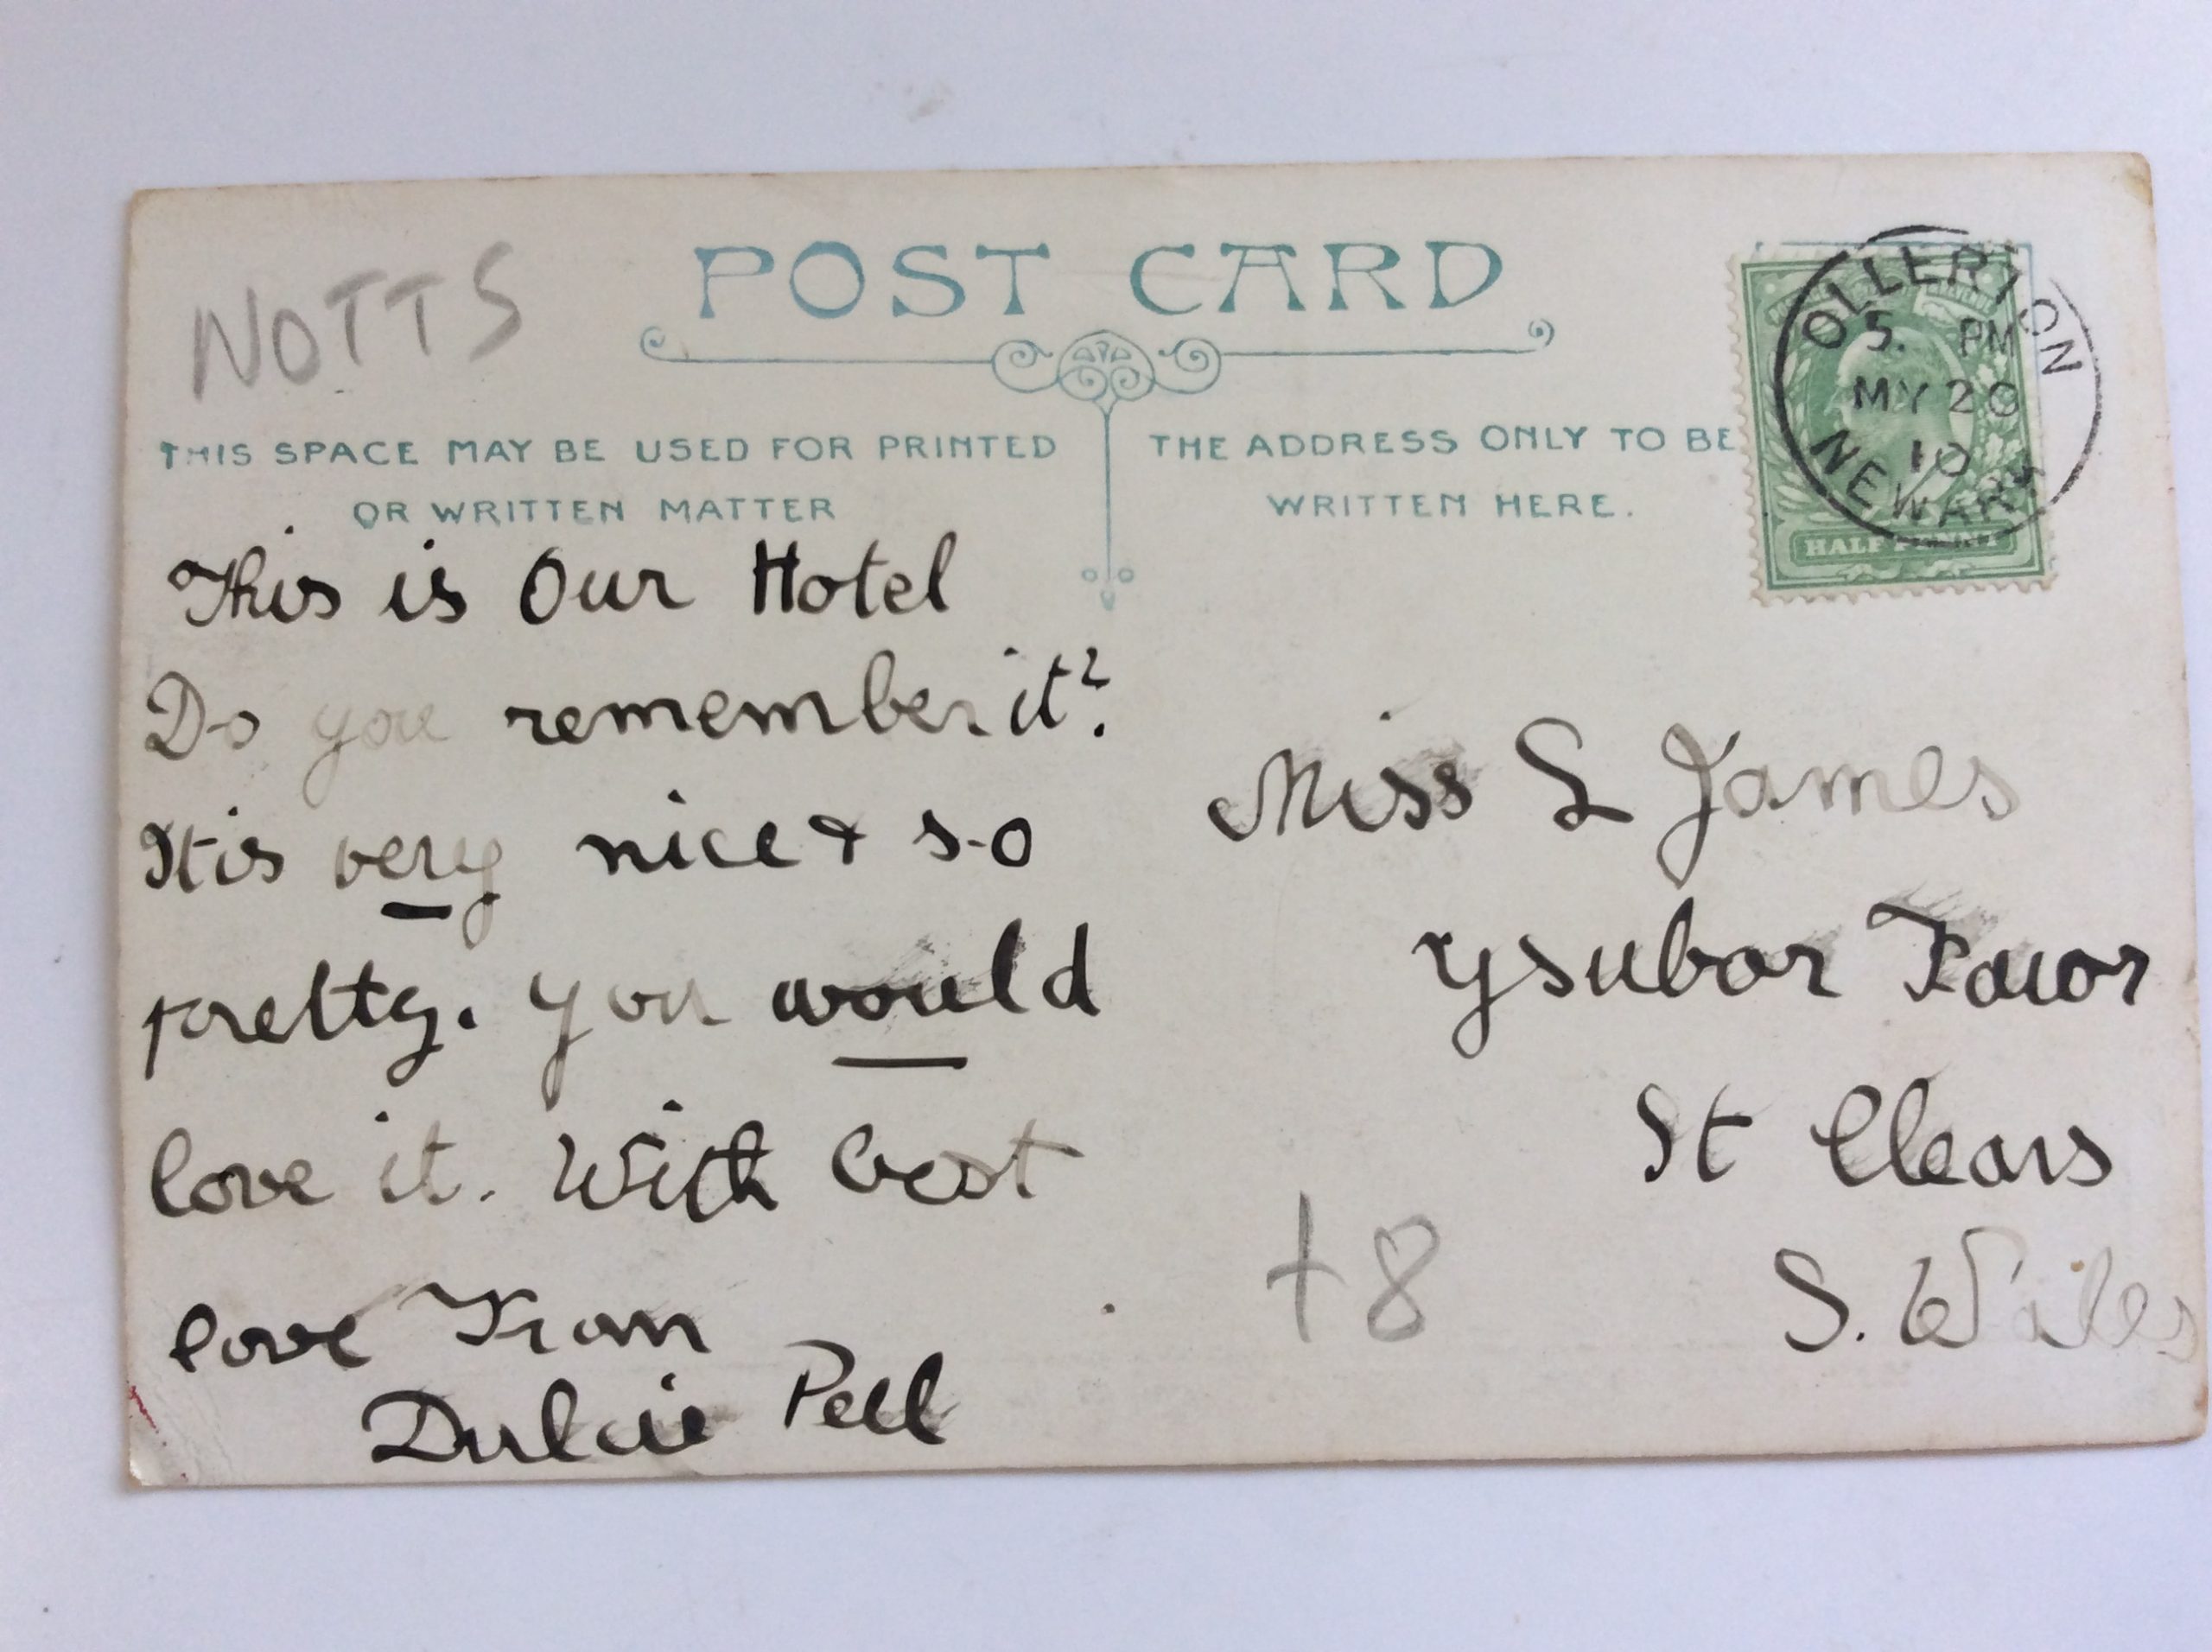 NOTTS
POST CARD
THIS SPACE MAY BE USED FOR PRINTED
OR WRITTEN MATTER
This is Our Hotel
Do you remember it?
It is very nice & so
pretty. you would
love it. With best
love From
Dulcie Pell
THE ADDRESS ONLY TO BE
WRITTEN HERE.
OLLERTON
5. PM
MY 20
10
NEWARK
HALFPENNY
Miss L James
Ysubor Fawr
St Clears
S. Wales
+8